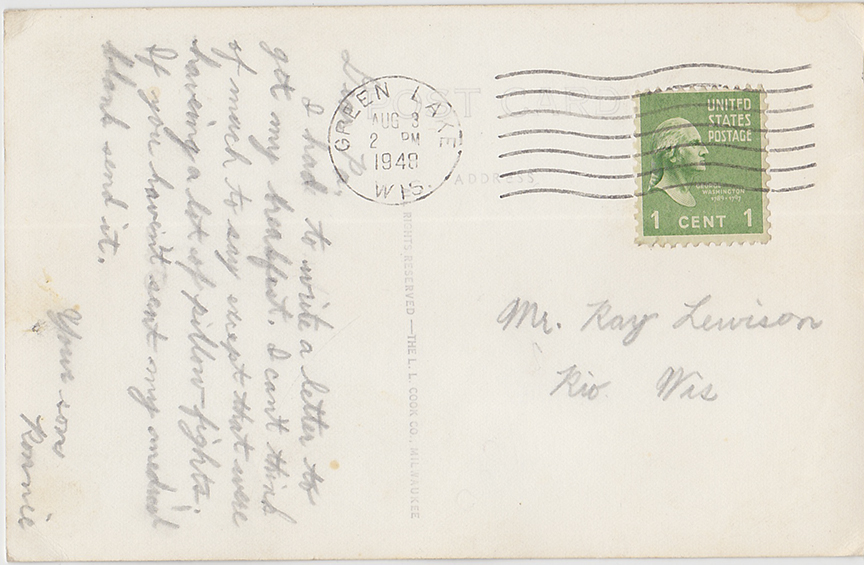 Dear Pa,
I had to write a letter to
get my brakfast. I can't think
of much to say exept that were
having a lot of pillow-fights.
If you haven't sent my
blank send it.
Your son
Ronnie
POST CARD
ADDRESS
GREEN LAKE
AUG 3
2 PM
1948
WIS.
UNITED
STATES
POSTAGE
GEORGE
WASHINGTON
1789-1797
1 CENT 1
RIGHTS RESERVED — THE L. L. COOK CO., MILWAUKEE
Mr. Ray Lewison
Rio Wis